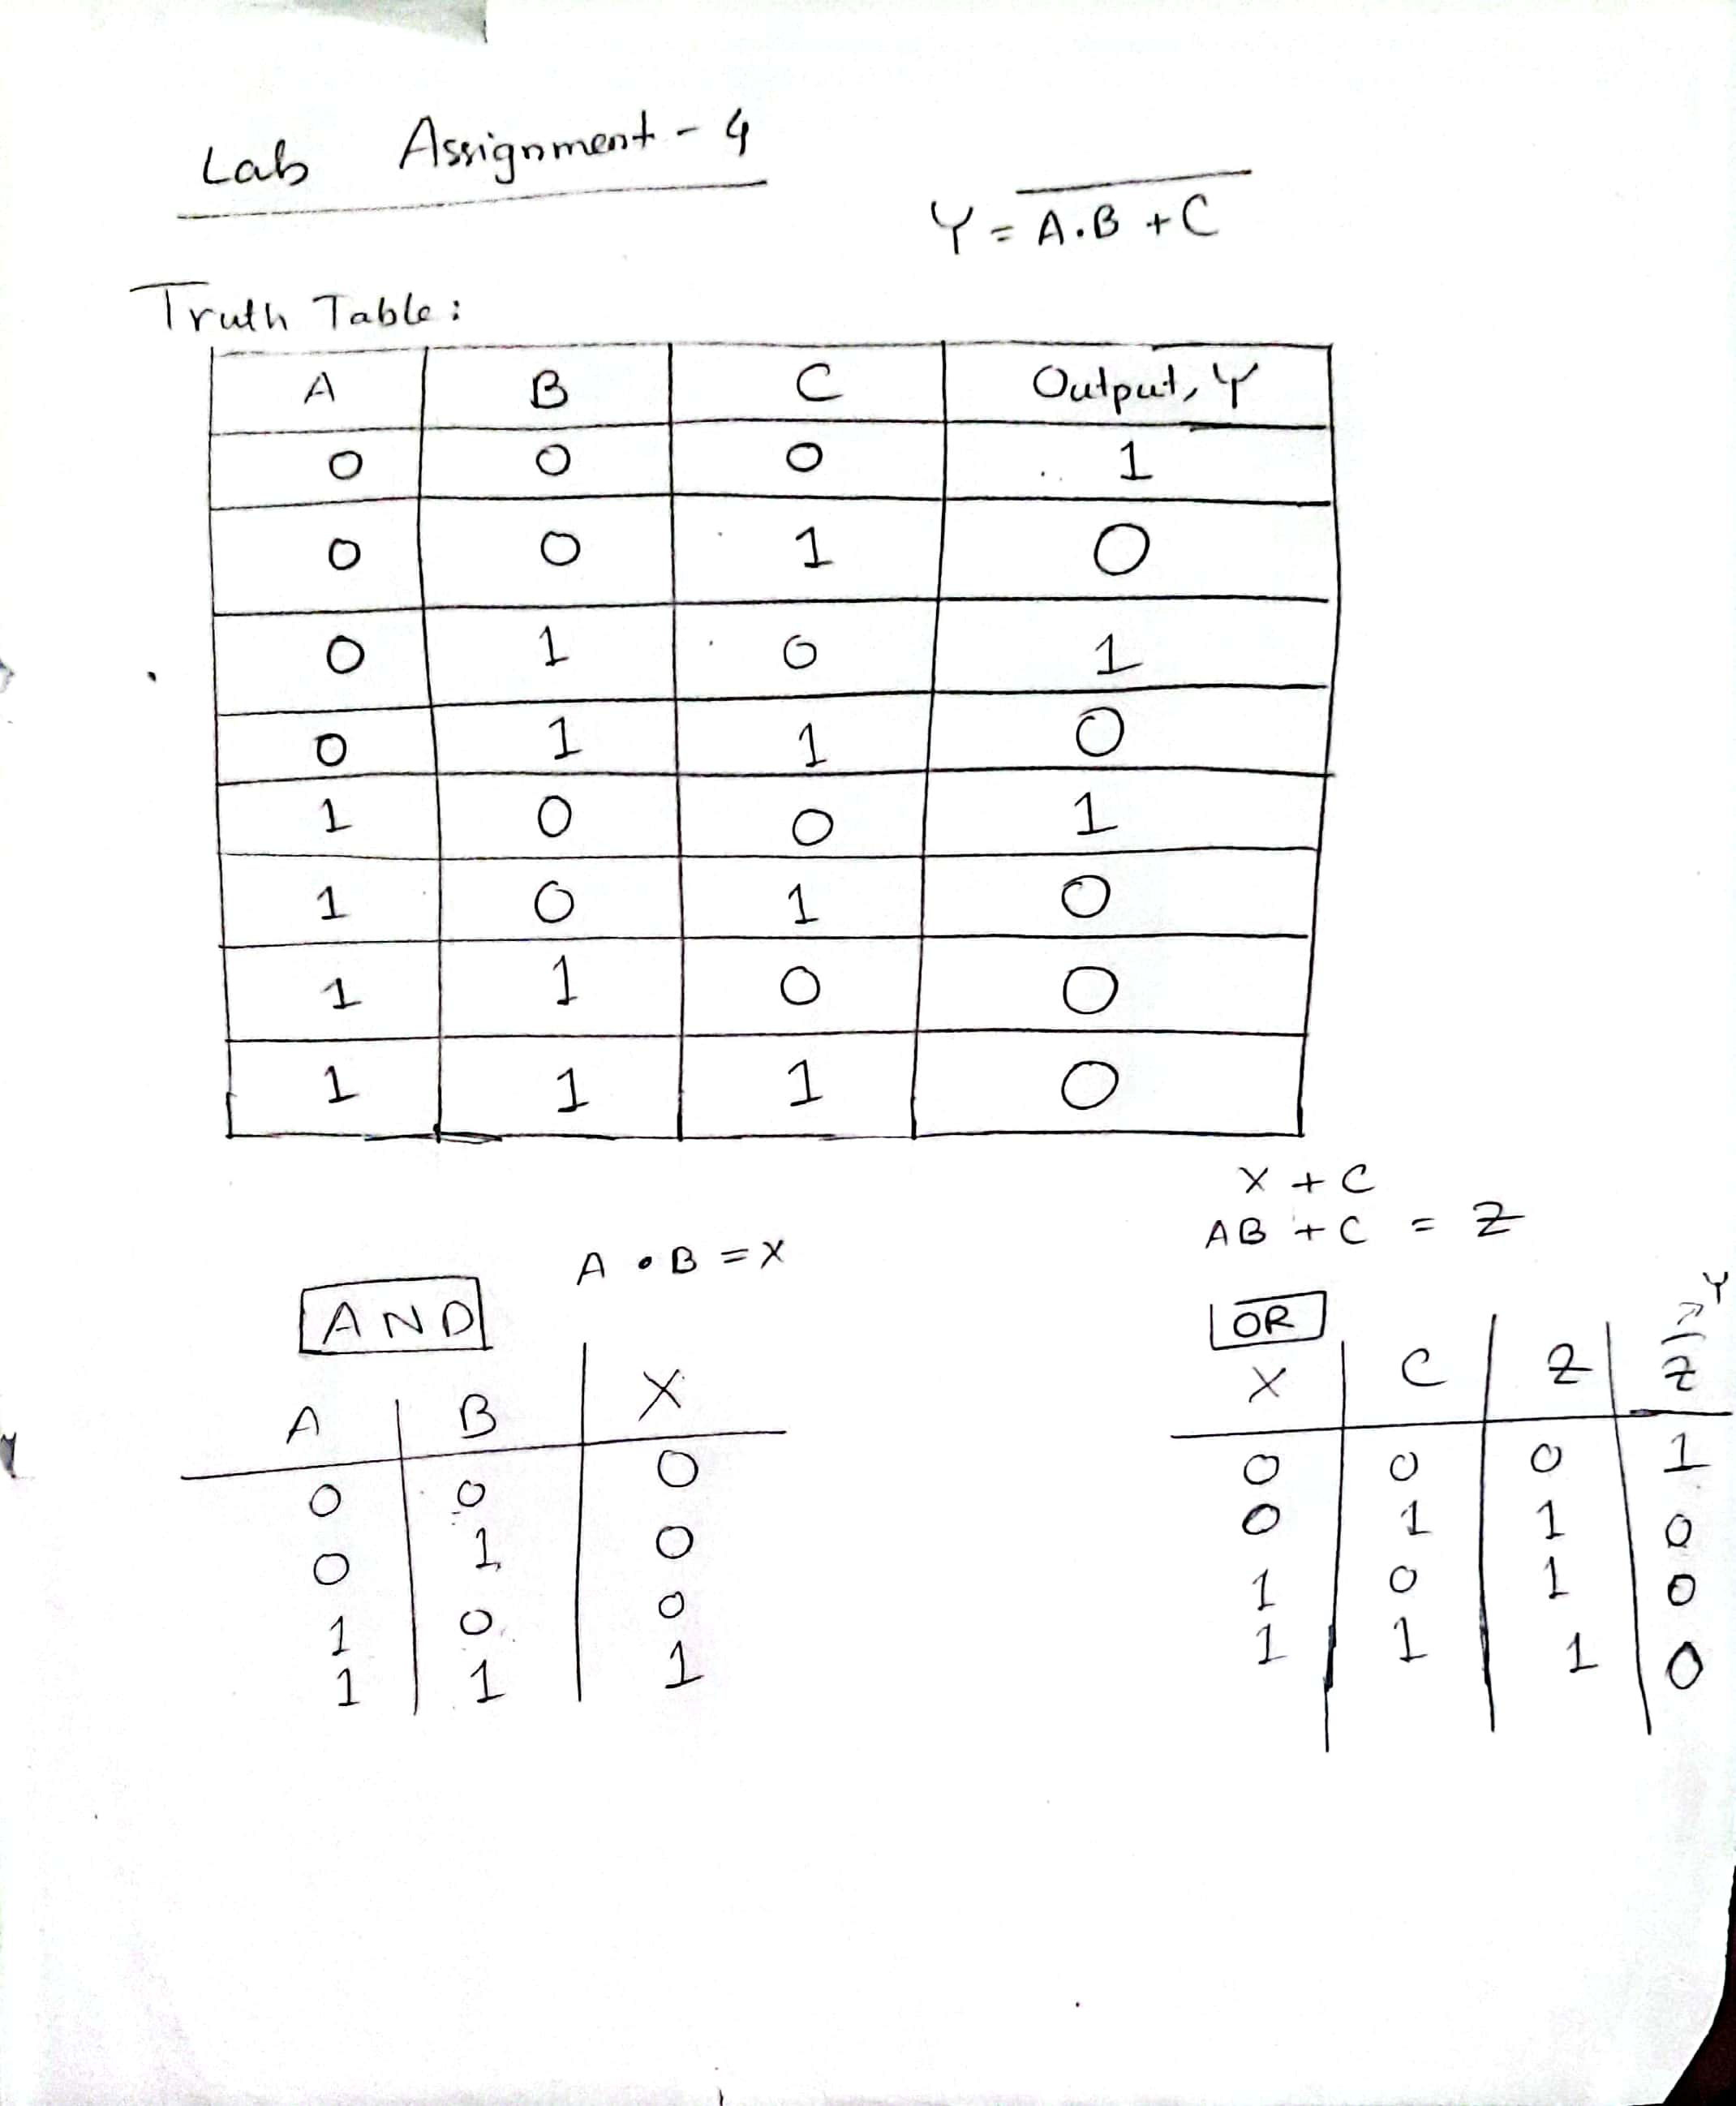 Lab Assignment - 4
Y = \overline{A.B + C}
Truth Table :
A B C Output, Y
0 0 0 1
0 0 1 0
0 1 0 1
0 1 1 0
1 0 0 1
1 0 1 0
1 1 0 0
1 1 1 0
A • B = X
AND
A B X
0 0 0
0 1 0
1 0 0
1 1 1
X + C
AB + C = Z
OR
Y
X C Z \overline{Z}
0 0 0 1
0 1 1 0
1 0 1 0
1 1 1 0